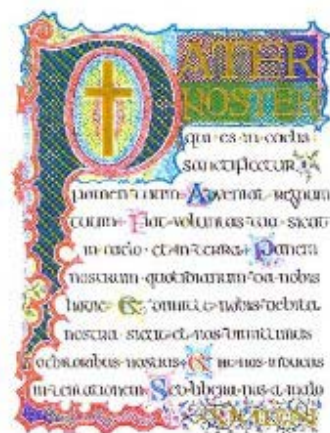 PATER
NOSTER
qui es in caelis
sanctificetur
nomen tuum Adveniat regnum
tuum Fiat voluntas tua sicut
in caelo et in terra Panem
nostrum quotidianum da nobis
hodie Et dimitte nobis debita
nostra sicut et nos dimittimus
debitoribus nostris Et ne nos inducas
in tentationem Sed libera nos a malo
AMEN